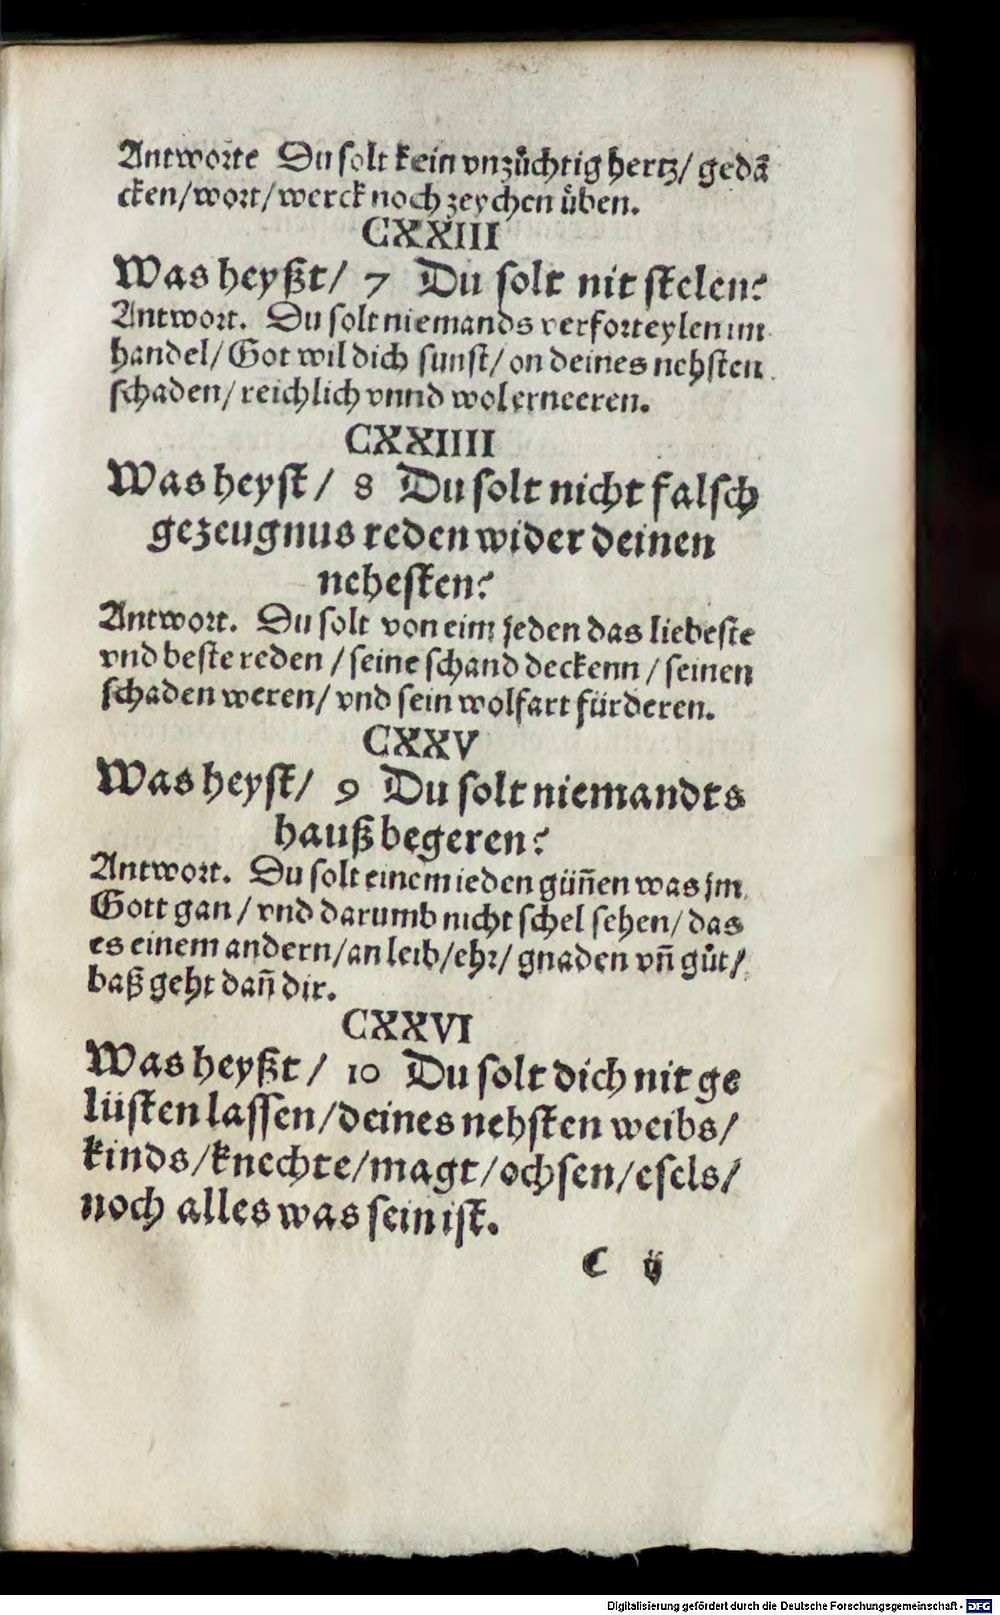 Antworte Du solt kein vnzůchtig hertz/ gedã
cken/wort/werck noch zeychen ůben.
CXXIII
Was heyßt/ 7 Du solt nit stelen?
Antwort. Du solt niemands verforteylen im
handel/ Got wil dich sunst/ on deines nehsten
schaden/ reichlich vnnd wol erneeren.
CXXIIII
Was heyst/ 8 Du solt nicht falsch
gezeugnus reden wider deinen
nehesten?
Antwort. Du solt von eim jeden das liebeste
vnd beste reden / seine schand deckenn / seinen
schaden weren/ vnd sein wolfart fürderen.
CXXV
Was heyst/ 9 Du solt niemandts
hauß begeren?
Antwort. Du solt einem ieden güñen was jm
Gott gan / vnd darumb nicht schel sehen/ das
es einem andern/an leib/ehr/ gnaden vñ gůt/
baß geht dañ dir.
CXXVI
Was heyßt/ 10 Du solt dich nit ge
lüsten lassen/deines nehsten weibs/
kinds/knechte/magt/ochsen/esels/
noch alles was sein ist.
C ij
Digitalisierung gefördert durch die Deutsche Forschungsgemeinschaft - DFG